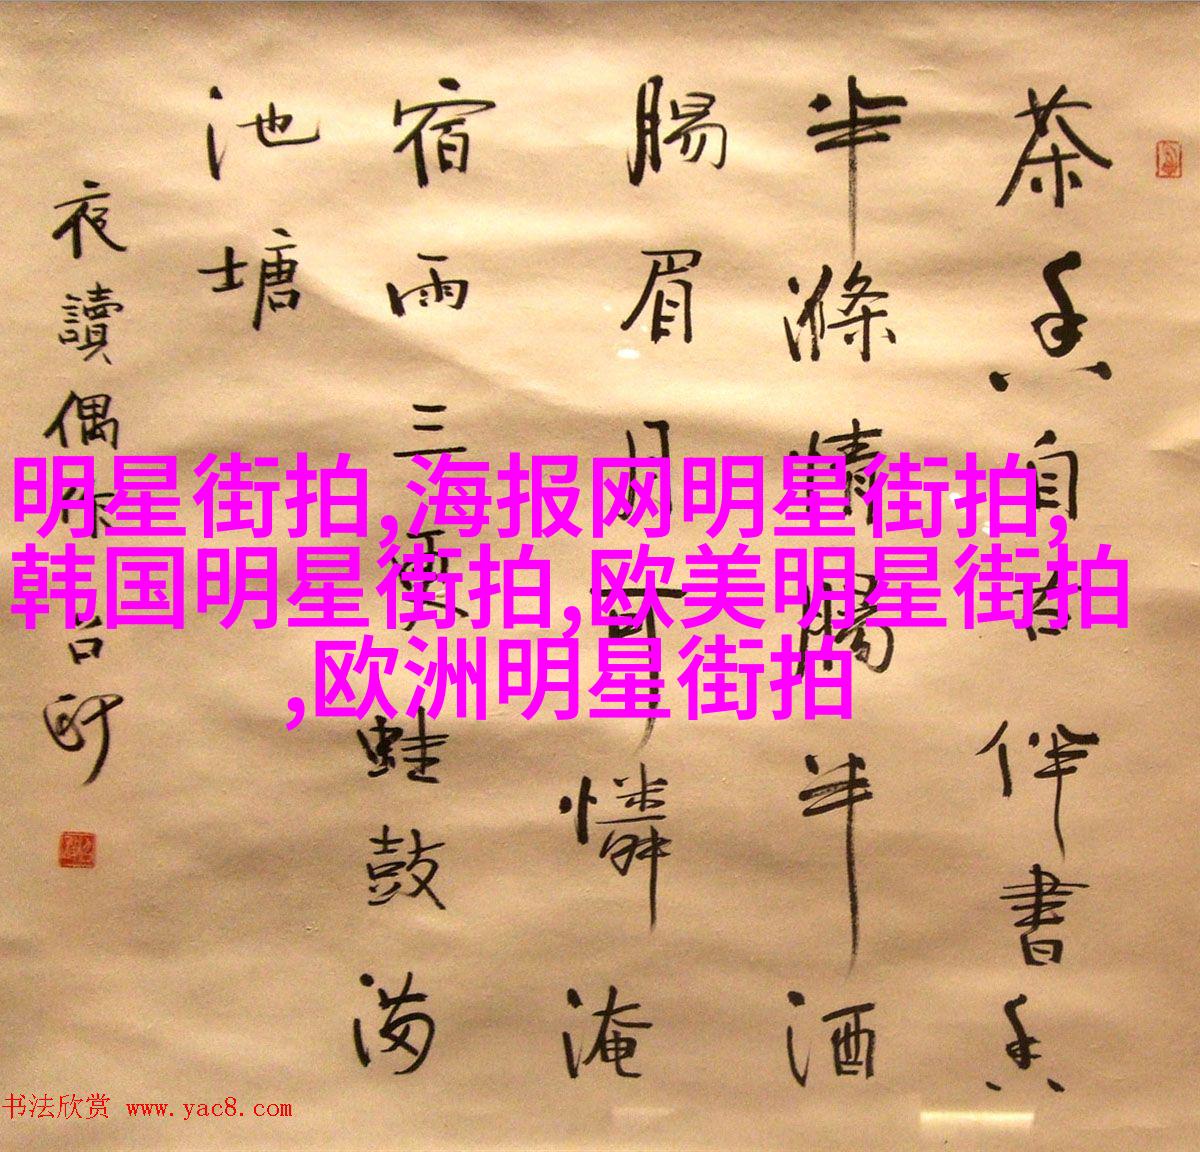 茶香自古伴書香
半滌情腸半酒
腸眉月可憐淹
宿雨三更蛙鼓满
池塘
夜讀偶作
明星街拍,海报网明星街拍,
韩国明星街拍,欧美明星街拍
,欧洲明星街拍
书法欣赏 www.yac8.com